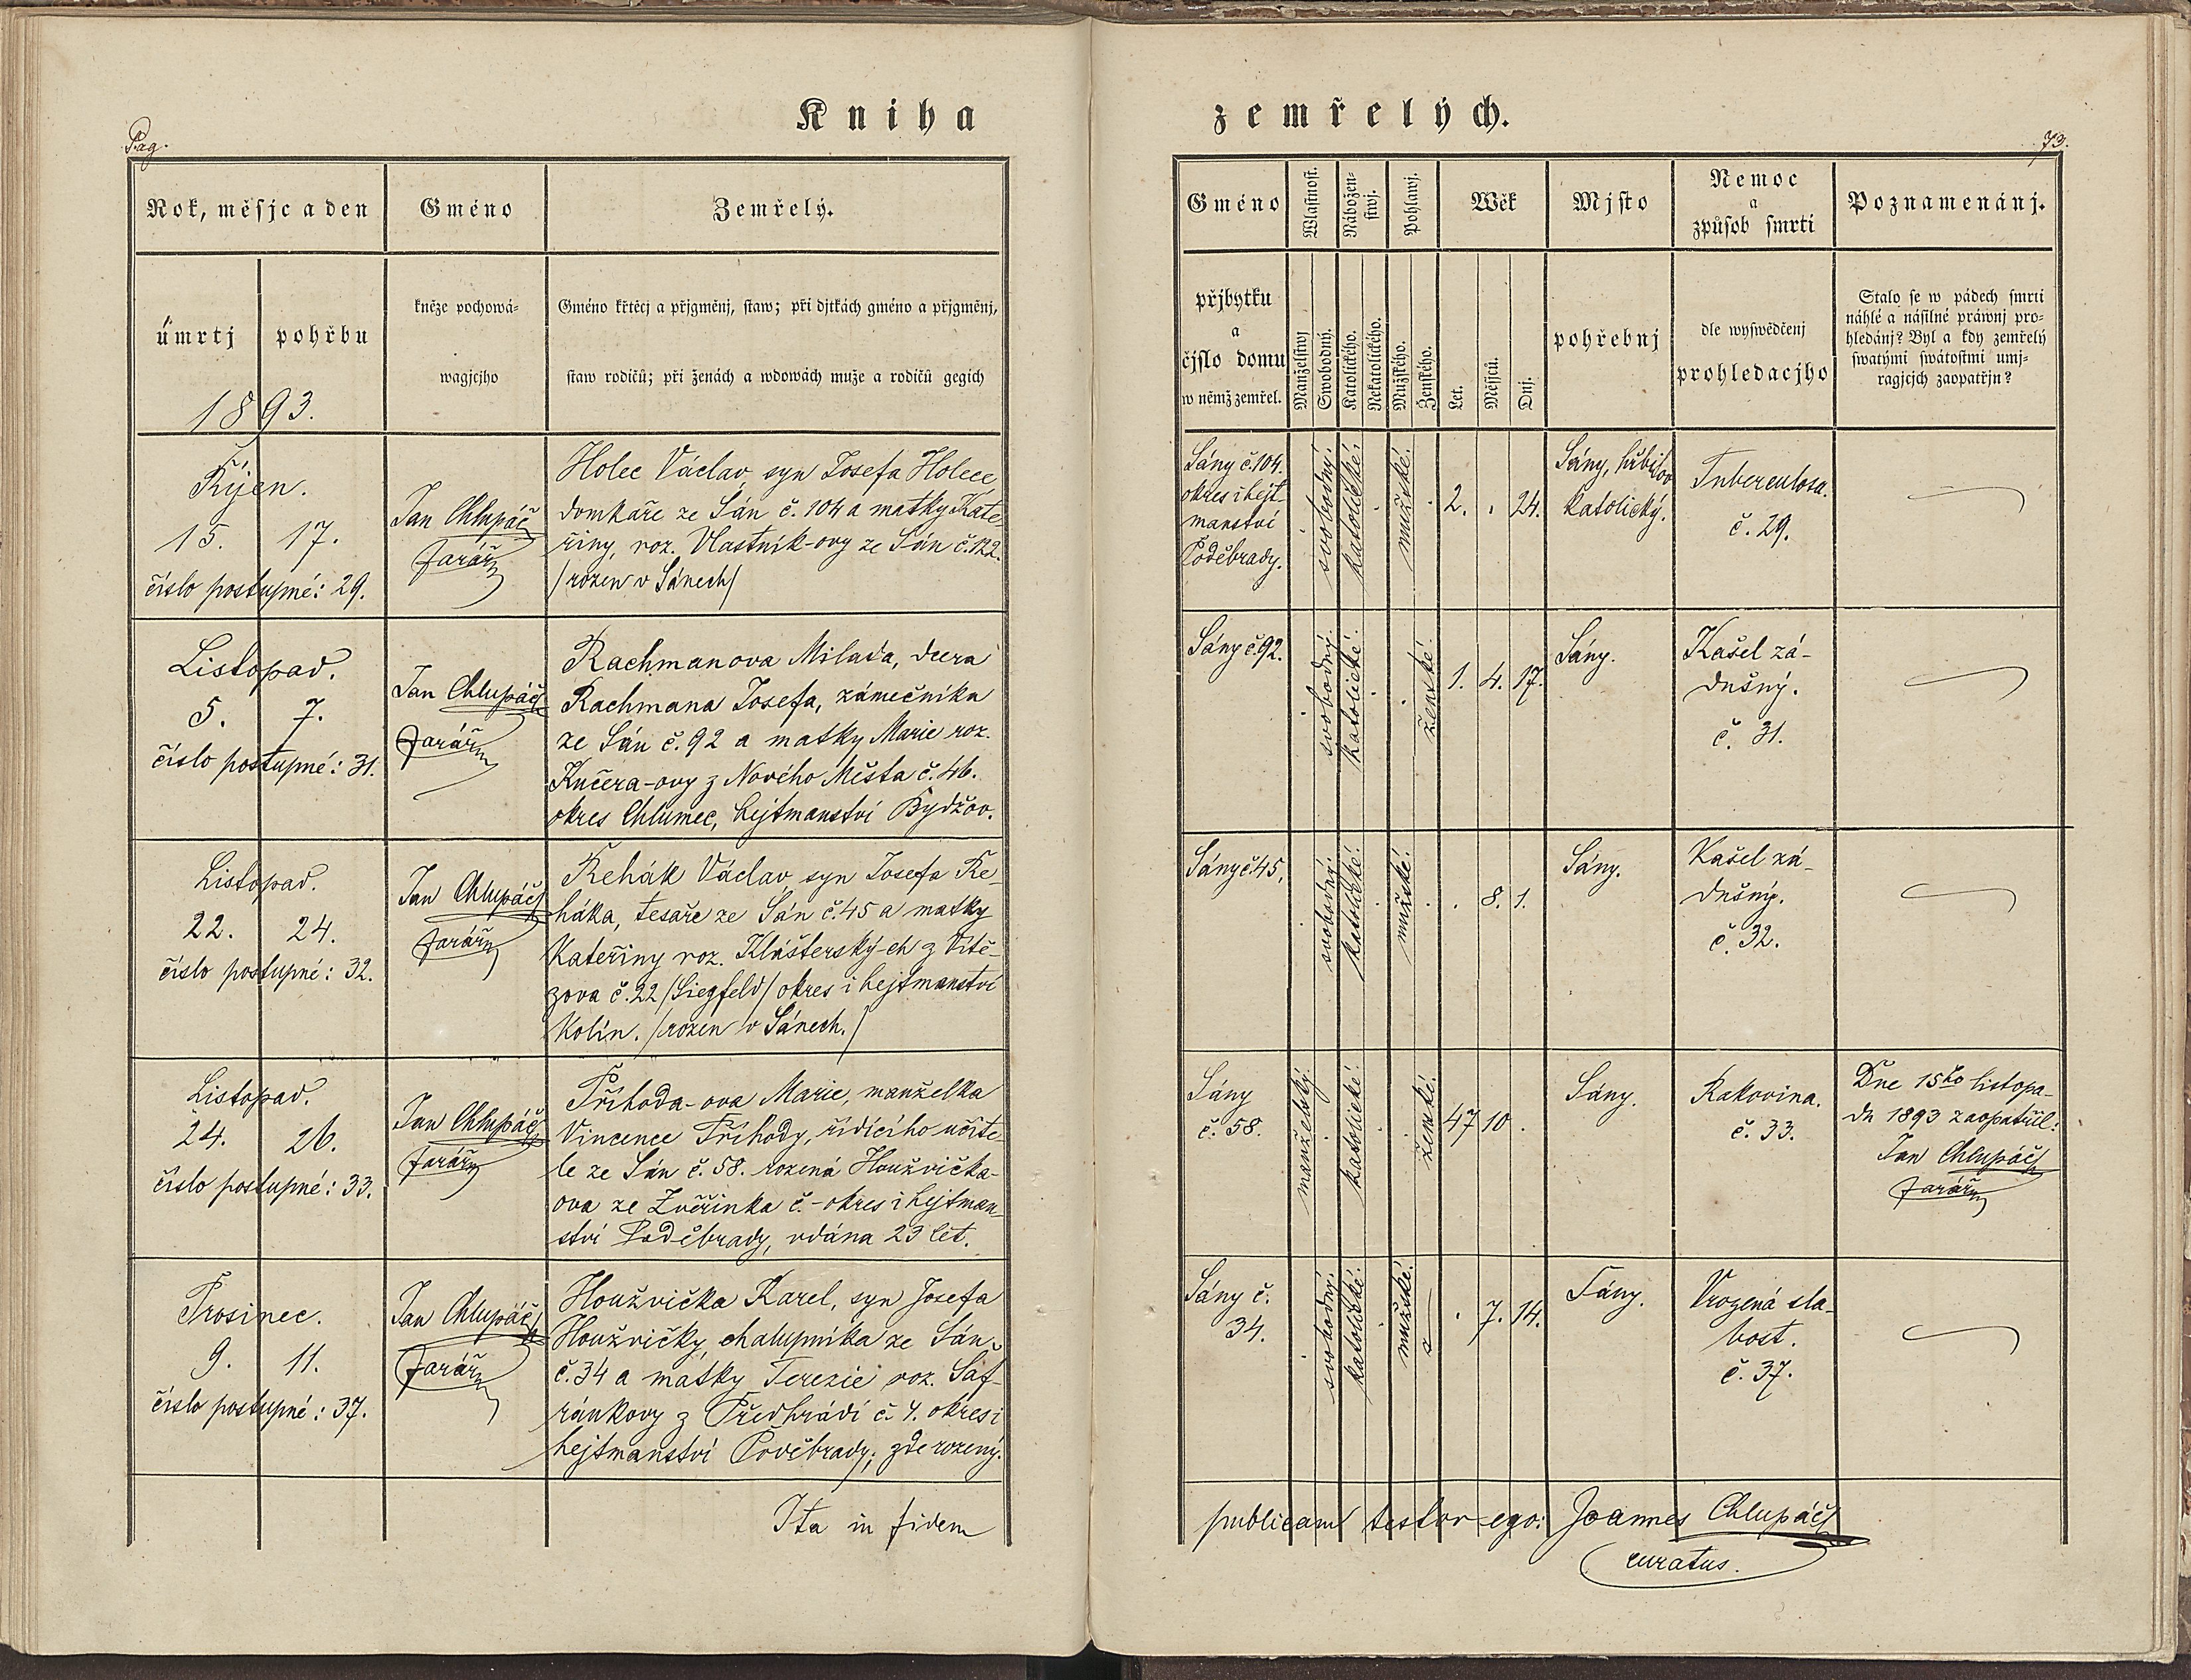 Kniha zemřelých.
Pag. 73.
Rok, měsjc a den
Gméno
Zemřelý.
Gméno
Wlastnost.
Nábožen-
stwj.
Pohlawj.
Wěk
Mjsto
Nemoc
a
způsob smrti
Poznamenánj.
úmrtj
pohřbu
1893.
kněze pochowá-
wagjcjho
Gméno křtěcj a přjgměnj, staw; při djtkách gméno a přjgměnj,
staw rodičů; při ženách a wdowách muže a rodičů gegich
přjbytku
a
čjslo domu
w němž zemřel.
Manželstwj
Swobodný.
Katolického.
Nekatolického.
Mužského.
Ženského.
Let.
Měsjců.
Dnj.
pohřebnj
dle wyswědčenj
prohledacjho
Stalo se w pádech smrti
náhlé a násilné práwnj pro-
hledánj? Byl a kdy zemřelý
swatými swátostmi umj-
ragjcjch zaopatřjn?
Říjen.
15. 17.
číslo postupné: 29.
Jan Chlupáč
farář
Holec Václav syn Josefa Holece
domkaře ze Sán č. 104 a matky Kate-
řiny, roz. Vlastník-ovy ze Sán č. 122.
/rozen v Sánech/
Sány č. 104.
okres i hejt-
manství
Poděbrady.
svobodný.
katolické.
mužské.
2. . 24.
Sány, hřbitov
katolický.
Tuberculosa.
č. 29.
Listopad.
5. 7.
číslo postupné: 31.
Jan Chlupáč
farář
Rachmanova Milada, dcera
Rachmana Josefa, zámečníka
ze Sán č. 92 a matky Marie roz.
Kučera-ovy z Nového Města č. 46.
okres Chlumec, hejtmanství Bydžov.
Sány č. 92.
svobodný.
katolické.
ženské.
1. 4. 17.
Sány.
Kašel zá-
dušný.
č. 31.
Listopad.
22. 24.
číslo postupné: 32.
Jan Chlupáč
farář
Řehák Václav syn Josefa Ře-
háka, tesaře ze Sán č. 45 a matky
Kateřiny roz. Klášterský-ch z Vítě-
zova č. 22 /Siegfeld/ okres i hejtmanství
Kolín. /rozen v Sánech./
Sány č. 45.
svobodný.
katolické.
mužské.
. 8. 1.
Sány.
Kašel zá-
dušný.
č. 32.
Listopad.
24. 26.
číslo postupné: 33.
Jan Chlupáč
farář
Příhoda-ova Marie, manželka
Vincence Příhody, řídícího učite-
le ze Sán č. 58. rozená Houžvička-
ova ze Zvěřínka č. - okres i hejtman-
ství Poděbrady, vdána 23 let.
Sány
č. 58.
manželský.
katolické.
ženské.
47 10 .
Sány.
Rakovina.
č. 33.
Dne 15ho listopa-
du 1893 zaopatřil:
Jan Chlupáč
farář
Prosinec.
9. 11.
číslo postupné: 37.
Jan Chlupáč
farář
Houžvička Karel, syn Josefa
Houžvičky, chalupníka ze Sán
č. 34 a matky Terezie roz. Šaf-
ránkovy z Předhrádí č. 4. okres i
hejtmanství Poděbrady; zde rozený.
Sány č.
34.
svobodný.
katolické.
mužské.
. 7. 14.
Sány.
Vrozená sla-
bost.
č. 37.
Ita in fidem publicam testor ego: Joannes Chlupáč
curatus.